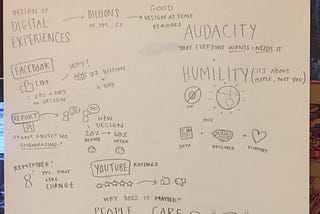 DESIGN OF
DIGITAL
EXPERIENCES
BILLIONS
OF PPL, SO
GOOD
DESIGN AT SCALE
REQUIRES
AUDACITY
THAT EVERYONE WANTS + NEEDS IT
+
HUMILITY (IT'S ABOUT
PEOPLE, NOT YOU)
ME
AND
DATA
RESEARCH
EMPATHY
FACEBOOK
LIKE
280+ HRS
TO DESIGN
WHY?
22 BILLION
X
A DAY
REPORT
SPAM? ABUSE? NO
EMBARRASSING!
NEW
DESIGN
20% → 60%
BEFORE AFTER
REMEMBER!
PPL DON'T
LIKE
CHANGE
YOUTUBE RATINGS
WHY DOES IT MATTER?
PEOPLE CARE